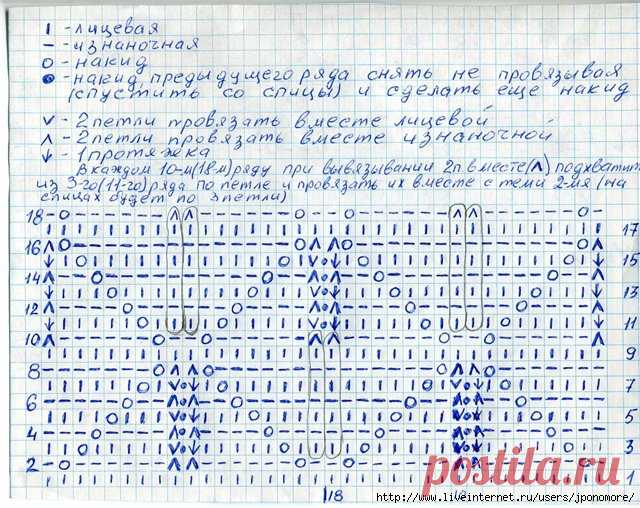 I - лицевая
— - изнаночная
O - накид
● - накид предыдущего ряда снять не провязывая
(спустить со спицы) и сделать еще накид
v - 2 петли провязать вместе лицевой
ʌ - 2 петли провязать вместе изнаночной
↓ - 1 протяжка
В каждом 10-м (18м) ряду при вывязывании 2п вместе (ʌ) подхватить
из 3-го (11-го) ряда по петле и провязать их вместе с теми 2-мя (на
спицах будет по 3 петли)
18
17
16
15
14
13
12
11
10
9
8
7
6
5
4
3
2
1
18
postila.ru
http://www.liveinternet.ru/users/jponomore/